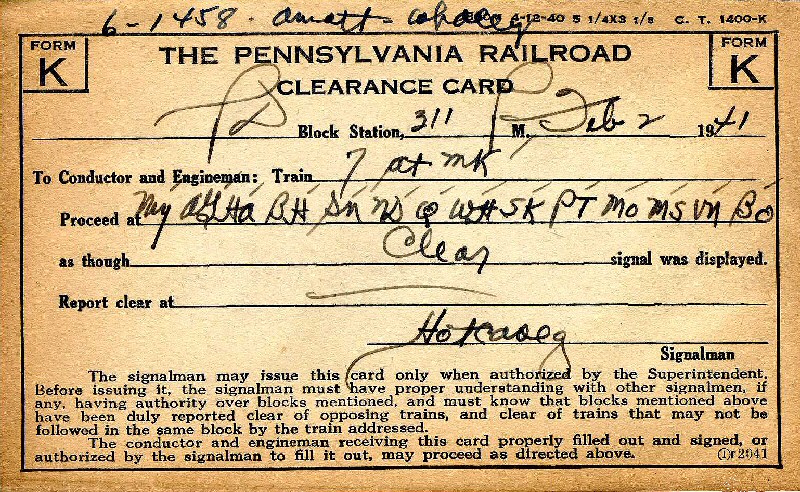 6-1458. 4-12-40 5 1/4X3 1/8 C. T. 1400-K
FORM K THE PENNSYLVANIA RAILROAD FORM K
CLEARANCE CARD
Block Station, 311 P M, Feb 2 1941
To Conductor and Engineman: Train 7 at MK
Proceed at My AG HA BH SN ND Q WH SK PT MO MS VN BO
as though Clear signal was displayed.
Report clear at
Signalman
The signalman may issue this card only when authorized by the Superintendent.
Before issuing it, the signalman must have proper understanding with other signalmen, if
any, having authority over blocks mentioned, and must know that blocks mentioned above
have been duly reported clear of opposing trains, and clear of trains that may not be
followed in the same block by the train addressed.
The conductor and engineman receiving this card properly filled out and signed, or
authorized by the signalman to fill it out, may proceed as directed above.